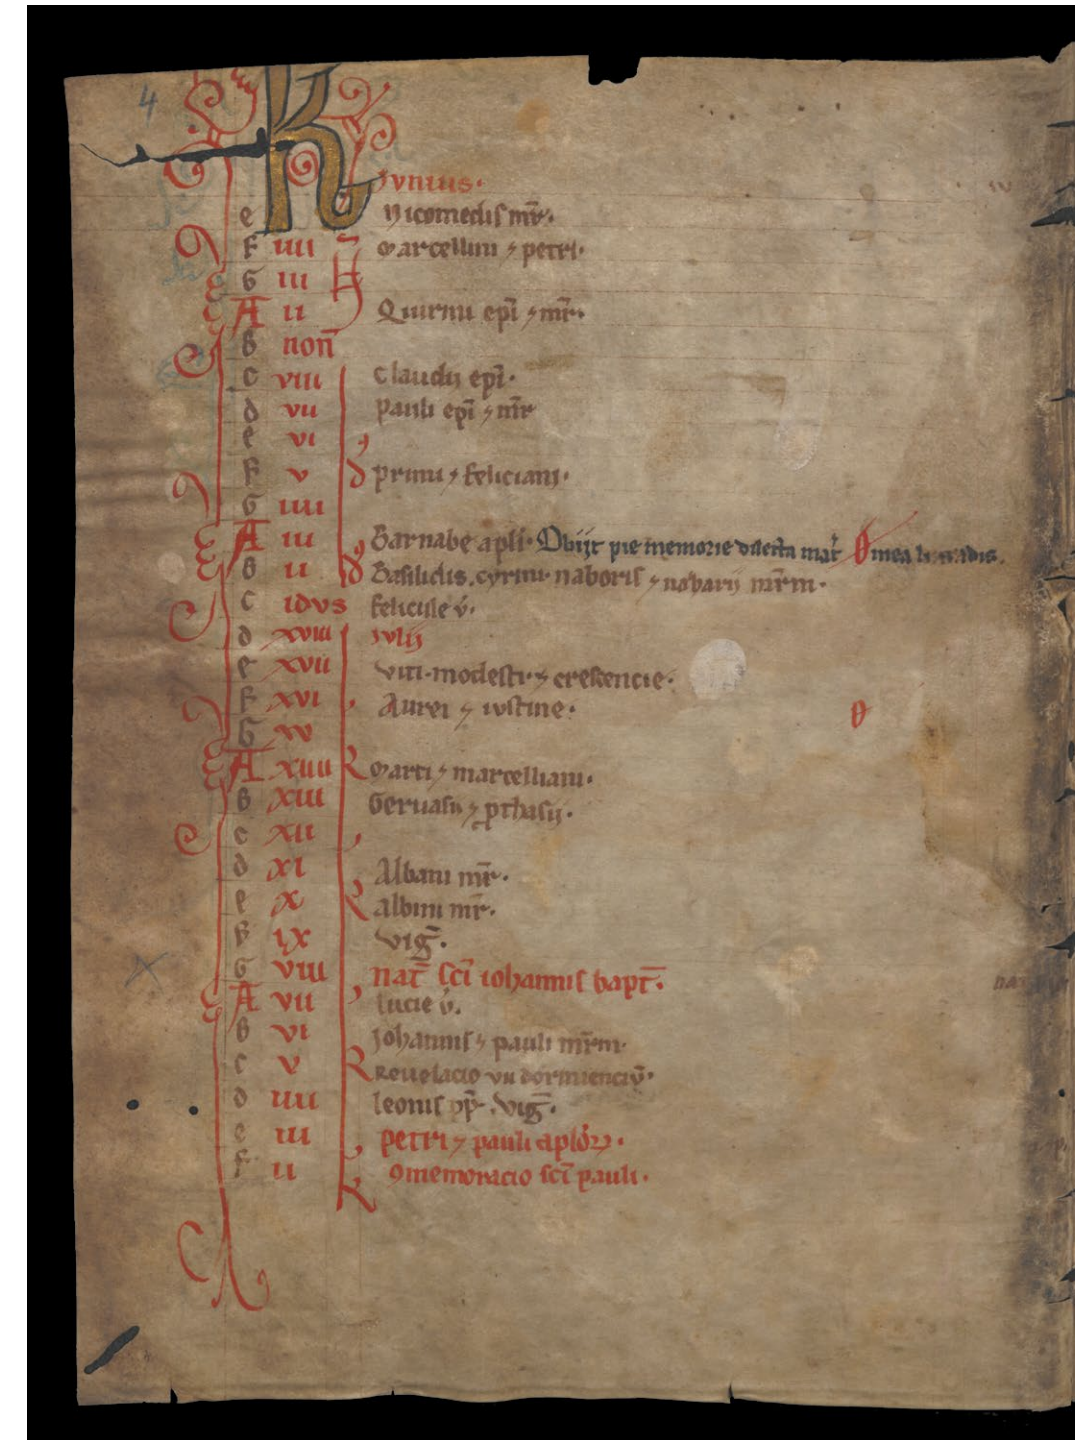 4
K
Junius.
e Nicomedis mr̄.
F iiii Marcellini ⁊ petri.
G iii
A ii Quirini ep̄i ⁊ mr̄.
B non̄
C viii Claudij ep̄i.
d vii Pauli ep̄i ⁊ mr̄
e vi
F v primi ⁊ feliciani.
G iiii
A iii Barnabe apl̄i. Obijt pie memorie dilecta mat̄ mea
B ii Basilidis. cyrini. naboris ⁊ nabarij mr̄m.
C idvs felicule v̄.
d xviii Julij
e xvii viti. modesti. ⁊ crescencie.
F xvi Aurei ⁊ iustine.
G xv
A xiiii Marci ⁊ marcelliani.
B xiii Geruasii ⁊ ꝓthasij.
c xii
d xi Albani mr̄.
e x albini mr̄.
F ix viḡ.
G viii nat̄ sc̄i iohannis bapt̄.
A vii lucie v̄.
B vi Johannis ⁊ pauli mr̄m.
C v Reuelacio vii dormienciū.
d iiii leonis pp̄. viḡ.
e iii petri ⁊ pauli aplōꝝ.
F ii ꝯmemoracio sc̄i pauli.